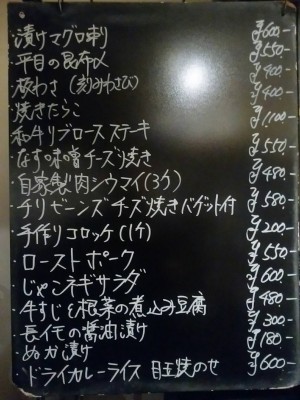 ・漬けマグロ刺 ¥600-
・平目の昆布〆 ¥550-
・板わさ(刻みわさび) ¥400-
・焼きたらこ ¥400-
・和牛リブロースステーキ ¥1100-
・なす味噌チーズ焼き ¥550-
・自家製肉シウマイ(3ケ) ¥480-
・チリビーンズチーズ焼きバゲット付 ¥580-
・手作りコロッケ(1ケ) ¥200-
・ローストポーク ¥550-
・じゃこネギサラダ ¥600-
・牛すじと根菜の煮込み豆腐 ¥480-
・長イモの醤油漬け ¥300-
・ぬか漬け ¥180-
・ドライカレーライス 目玉焼のせ ¥600-